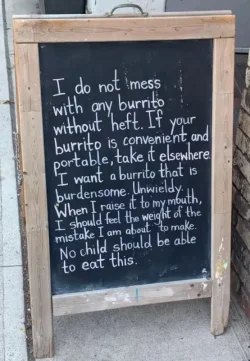 I do not mess
with any burrito
without heft. If your
burrito is convenient and
portable, take it elsewhere.
I want a burrito that is
burdensome. Unwieldy.
When I raise it to my mouth,
I should feel the weight of the
mistake I am about to make.
No child should be able
to eat this.